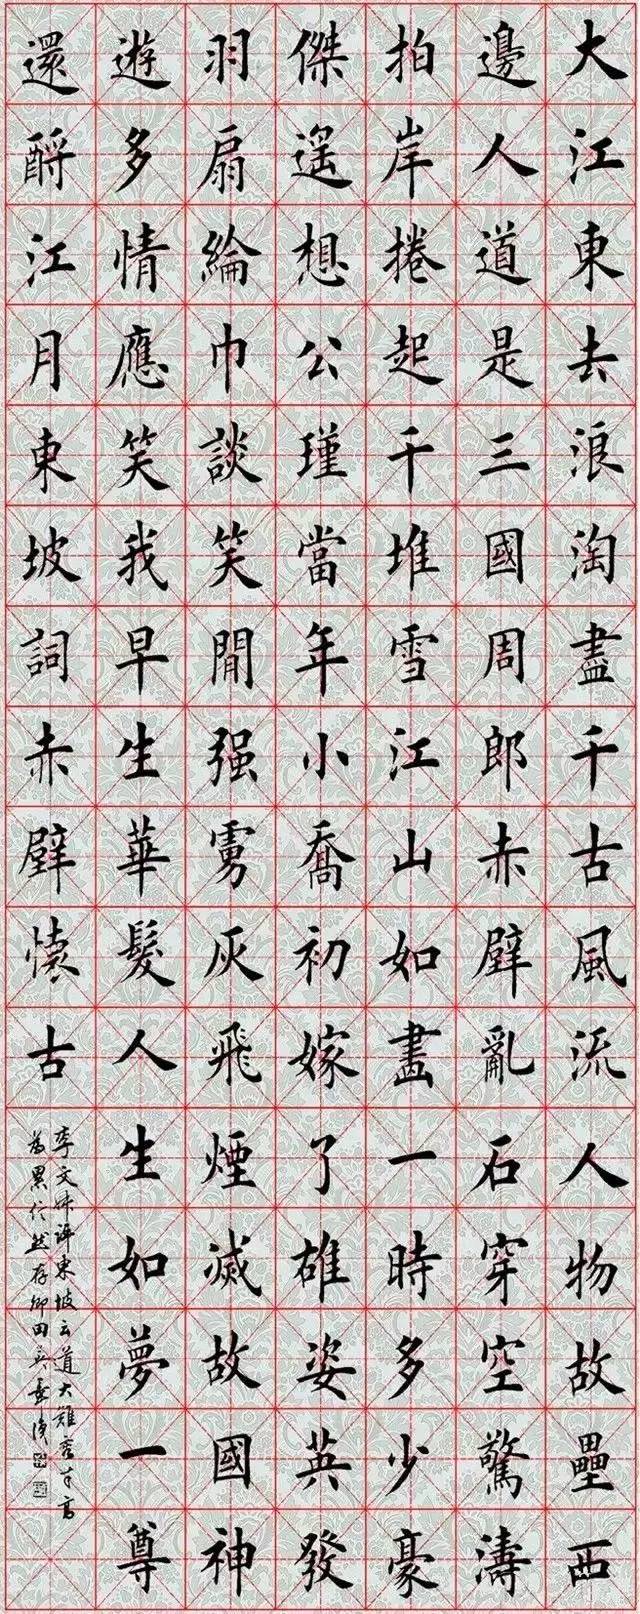 大江東去浪淘盡千古風流人物故壘西
邊人道是三國周郎赤壁亂石穿空驚濤
拍岸捲起千堆雪江山如畫一時多少豪
傑遙想公瑾當年小喬初嫁了雄姿英發
羽扇綸巾談笑間强虜灰飛煙滅故國神
遊多情應笑我早生華髮人生如夢一尊
還酹江月東坡詞赤壁懷古
李文評東坡云道大難容才高
為累信然存卿田英章